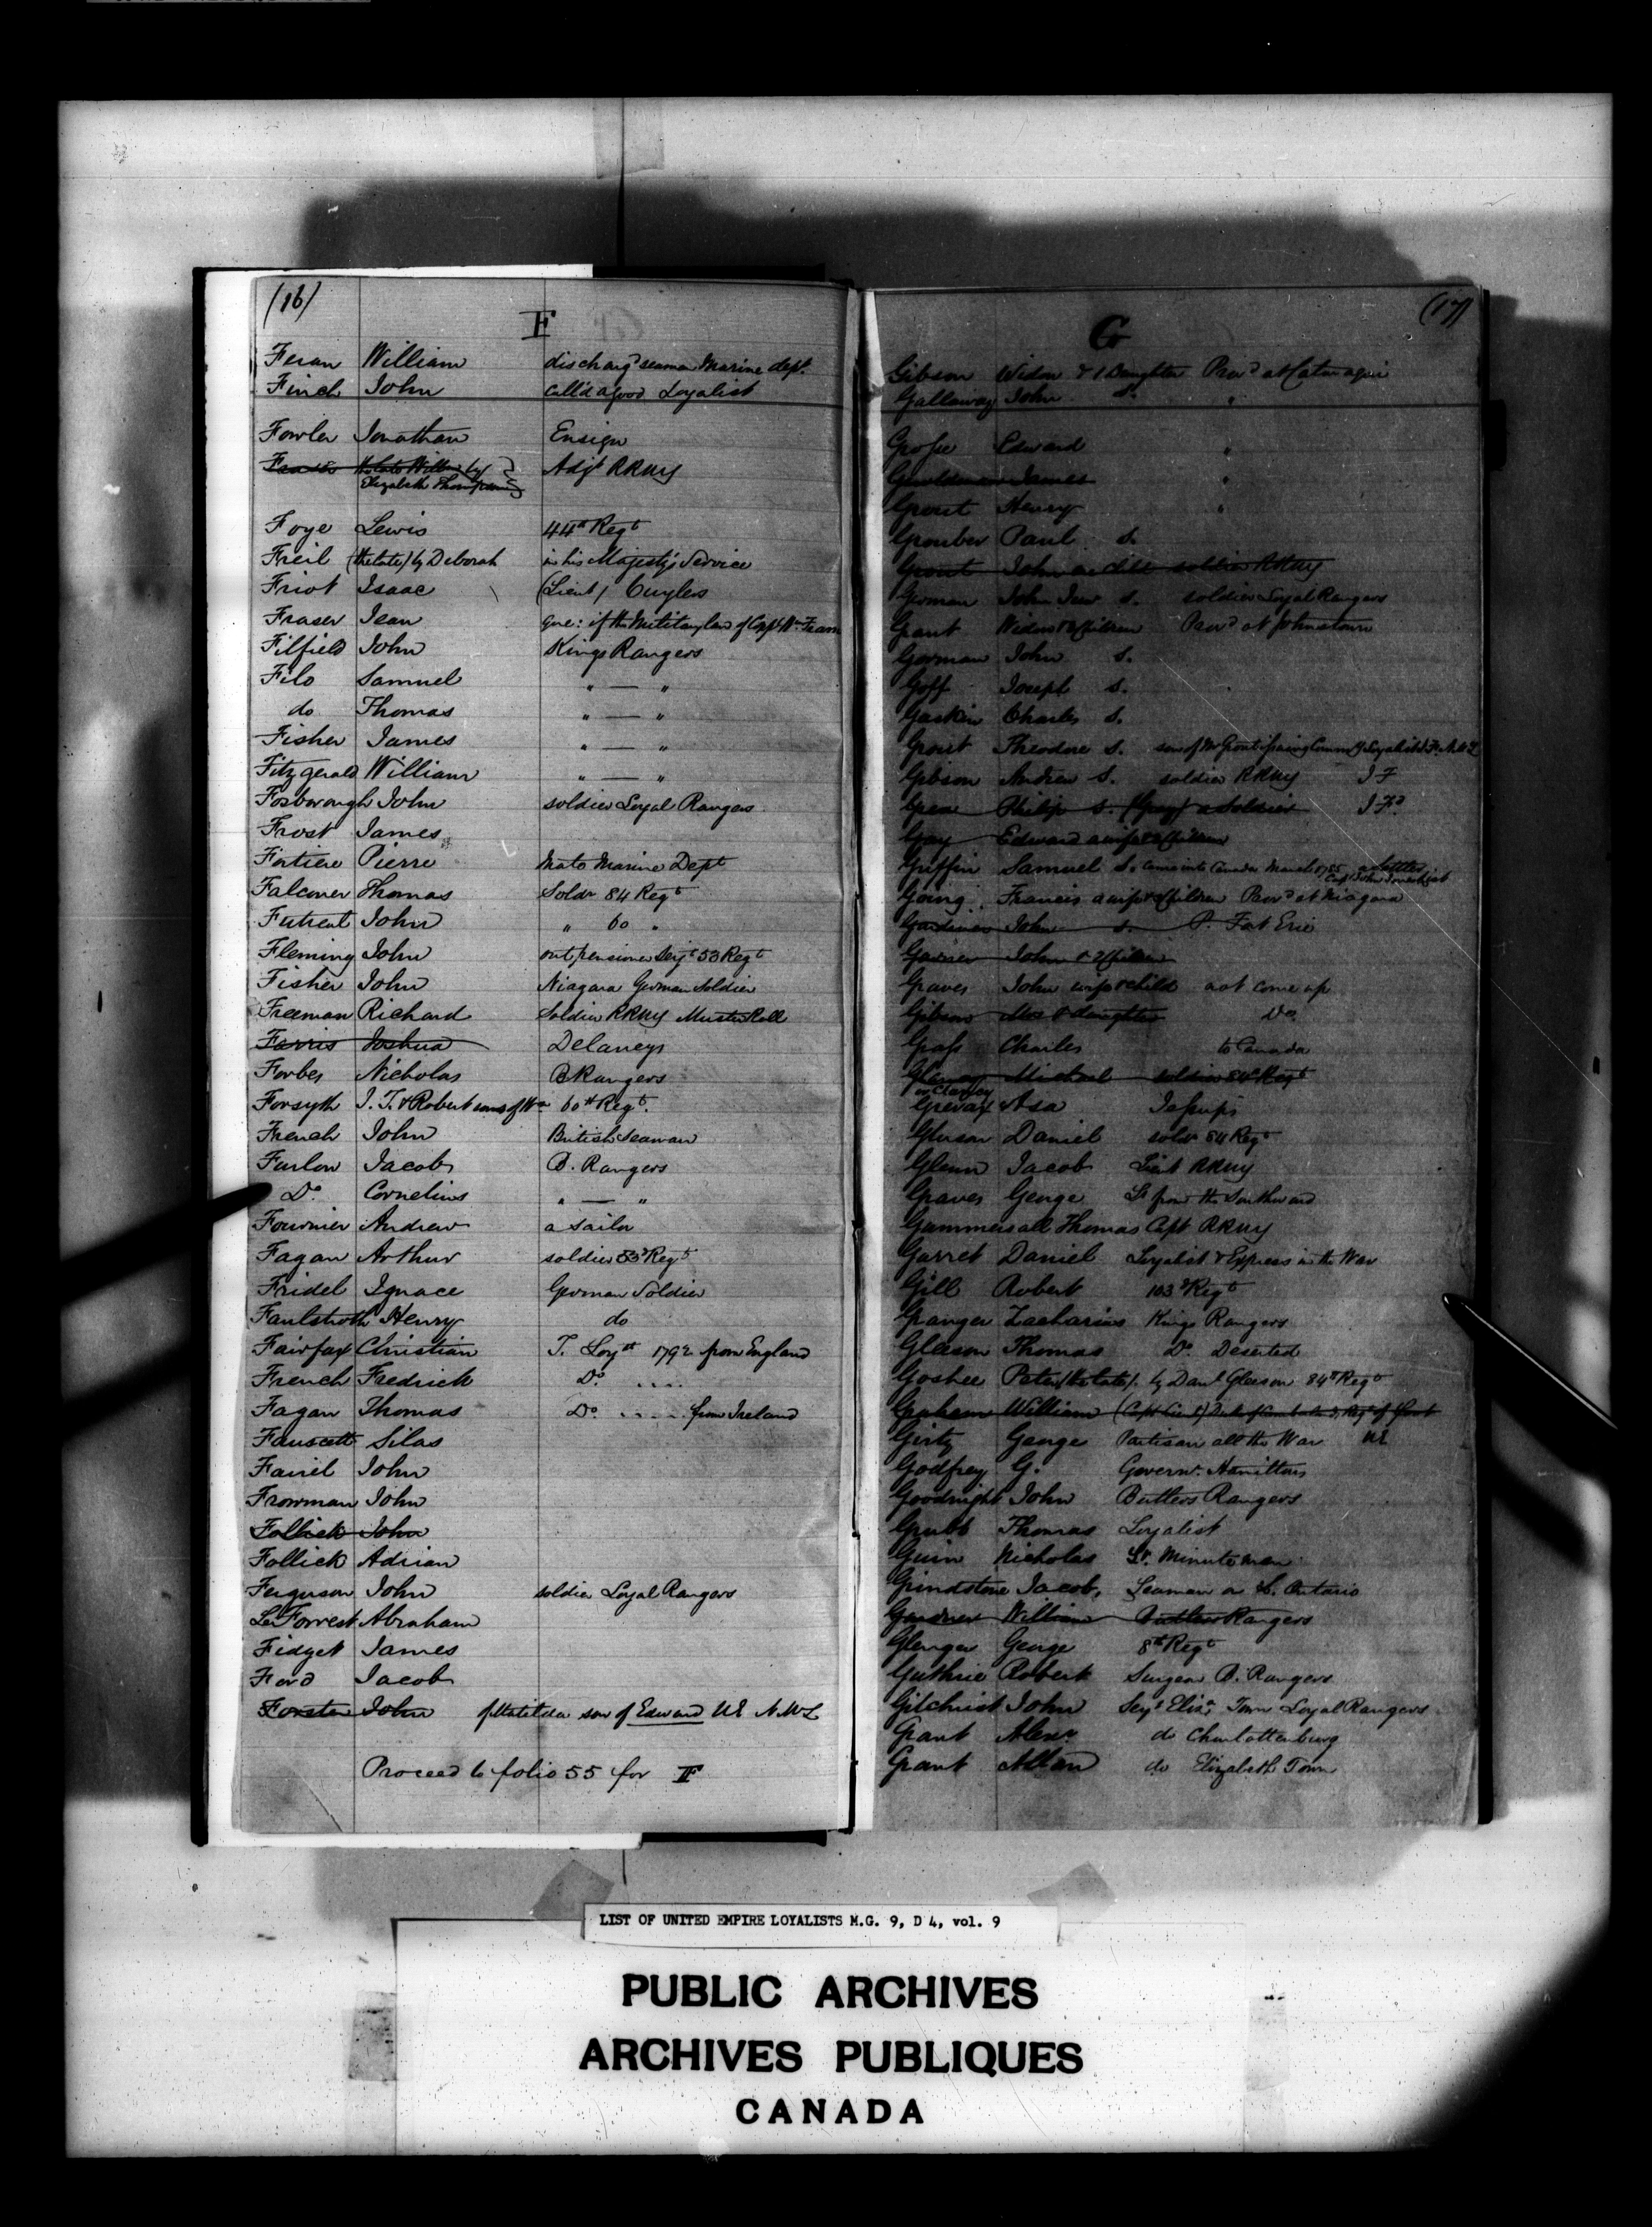 (16)
F
Feran William dischargd seaman Marine dept.
Finch John call'd a good Loyalist
Fowler Jonathan Ensign
Fraser the late William by Adjt RRNY
Elizabeth Thompson
Foye Lewis 44th Regt
Freil (the late) by Deborah in his Majesty's Service
Friot Isaac (Lieut) Cuylers
Fraser Jean que: if the Military law of Capt Wm Fraser
Filfield John Kings Rangers
Filo Samuel " — "
do Thomas " — "
Fisher James " — "
Fitzgerald William " — "
Foxborough John soldier Loyal Rangers
Frost James
Fortiere Pierre Mate Marine Dept
Falconer Thomas Soldr 84 Regt
Futreat John " 60 "
Fleming John out pensioner Serjt 53 Regt
Fisher John Niagara German Soldier
Freeman Richard Soldier RRNY Muster Roll
Farris Joshua Delanceys
Forbes Nicholas B Rangers
Forsyth J. T. & Robert sons of Wm 60th Regt.
French John British Seaman
Furlow Jacob B. Rangers
Do Cornelius " — "
Fournier Andrew a sailor
Fagan Arthur soldier 53d Regt
Fridel Ignace German Soldier
Faulstroth Henry do
Fairfax Christian T. Loyst 1792 from England
French Fredrick Do ....
Fagan Thomas Do .... from Ireland
Fauscett Silas
Fairel John
Frowman John
Follick John
Follick Adrian
Ferguson John soldier Loyal Rangers
La Forrest Abraham
Fidget James
Ford Jacob
Forster John of Matilda son of Edward UE NWL
Proceed to folio 55 for F
(17)
G
Gibson Widow & 1 Daughter Provd at Cataraqui
Gallaway John S. "
Grosse Edward "
James "
Grout Henry "
Grouber Paul S.
Grout John soldier RRNY
German John Junr S. soldier Loyal Rangers
Grant Widow & Children Provd at Johnstown
Gorman John S.
Goff Joseph S.
Gaskin Charles S.
Grout Theodore S. son of Mr Grout issuing Commy of Loyalists
Gibson Andrew S. soldier RRNY I F
Philip S. (Gray) a Soldier I Fd
Gay Edward a wife & Children
Griffin Samuel S. came into Canada March 1785 a Settler
Going Francis a wife & Children Provd at Niagara
Gardiner John S. P. Fort Erie
John & 2 Children
Graves John wife & child not come up
Gibson Mrs & daughter Do
Grass Charles to Canada
Michael soldier 84th Regt
or Clarvey
Grevax Asa Jessups
Gleason Daniel soldr 84 Regt
Glenn Jacob Lieut RRNY
Graves George Lt from the Southward
Gummersall Thomas Capt RRNY
Garret Daniel Loyalist & Express in the War
Gill Robert 103d Regt
Granger Zacharias Kings Rangers
Gleason Thomas Do Deserted
Goshee Peter (the late) by Danl Gleason 84th Regt
Graham William (Capt Lieut)
Girty George Partisan all the War UE
Godfrey G. Governr. Hamiltons
Goodnight John Butlers Rangers
Grubb Thomas Loyalist
Guin Nicholas Lt. Minute men
Grindstone Jacob, Seaman on L. Ontario
Gardner William Butlers Rangers
Glenger George 8th Regt
Guthrie Robert Surgeon B. Rangers
Gilchrist John Serjt Elizh Town Loyal Rangers
Grant Alexr do Charlottenburg
Grant Allan do Elizabeth Town
LIST OF UNITED EMPIRE LOYALISTS M.G. 9, D 4, vol. 9
PUBLIC ARCHIVES
ARCHIVES PUBLIQUES
CANADA